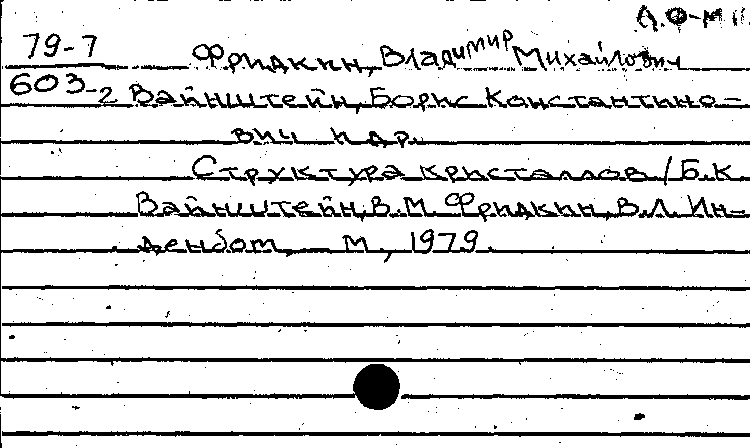 79-7
603-2
Фридкин, Владимир Михайлович
Вайнштейн, Борис Константино-
вич и др.
Структура кристаллов / Б.К.
Вайнштейн, В.М. Фридкин, В.Л. Ин-
денбом, – М., 1979.